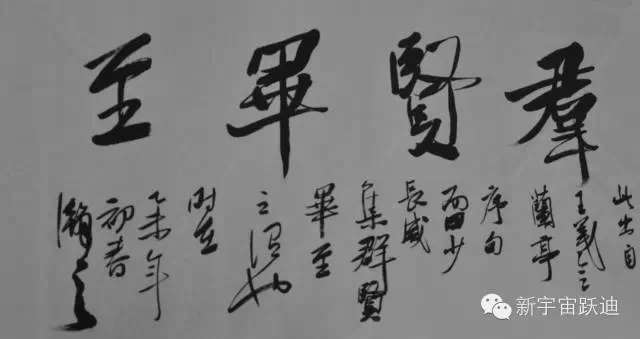 羣賢畢至
此出自
王羲之
蘭亭
序句
少
長咸
集群賢
畢至
之謂也
时在
乙未年
初春
新宇宙跃迪